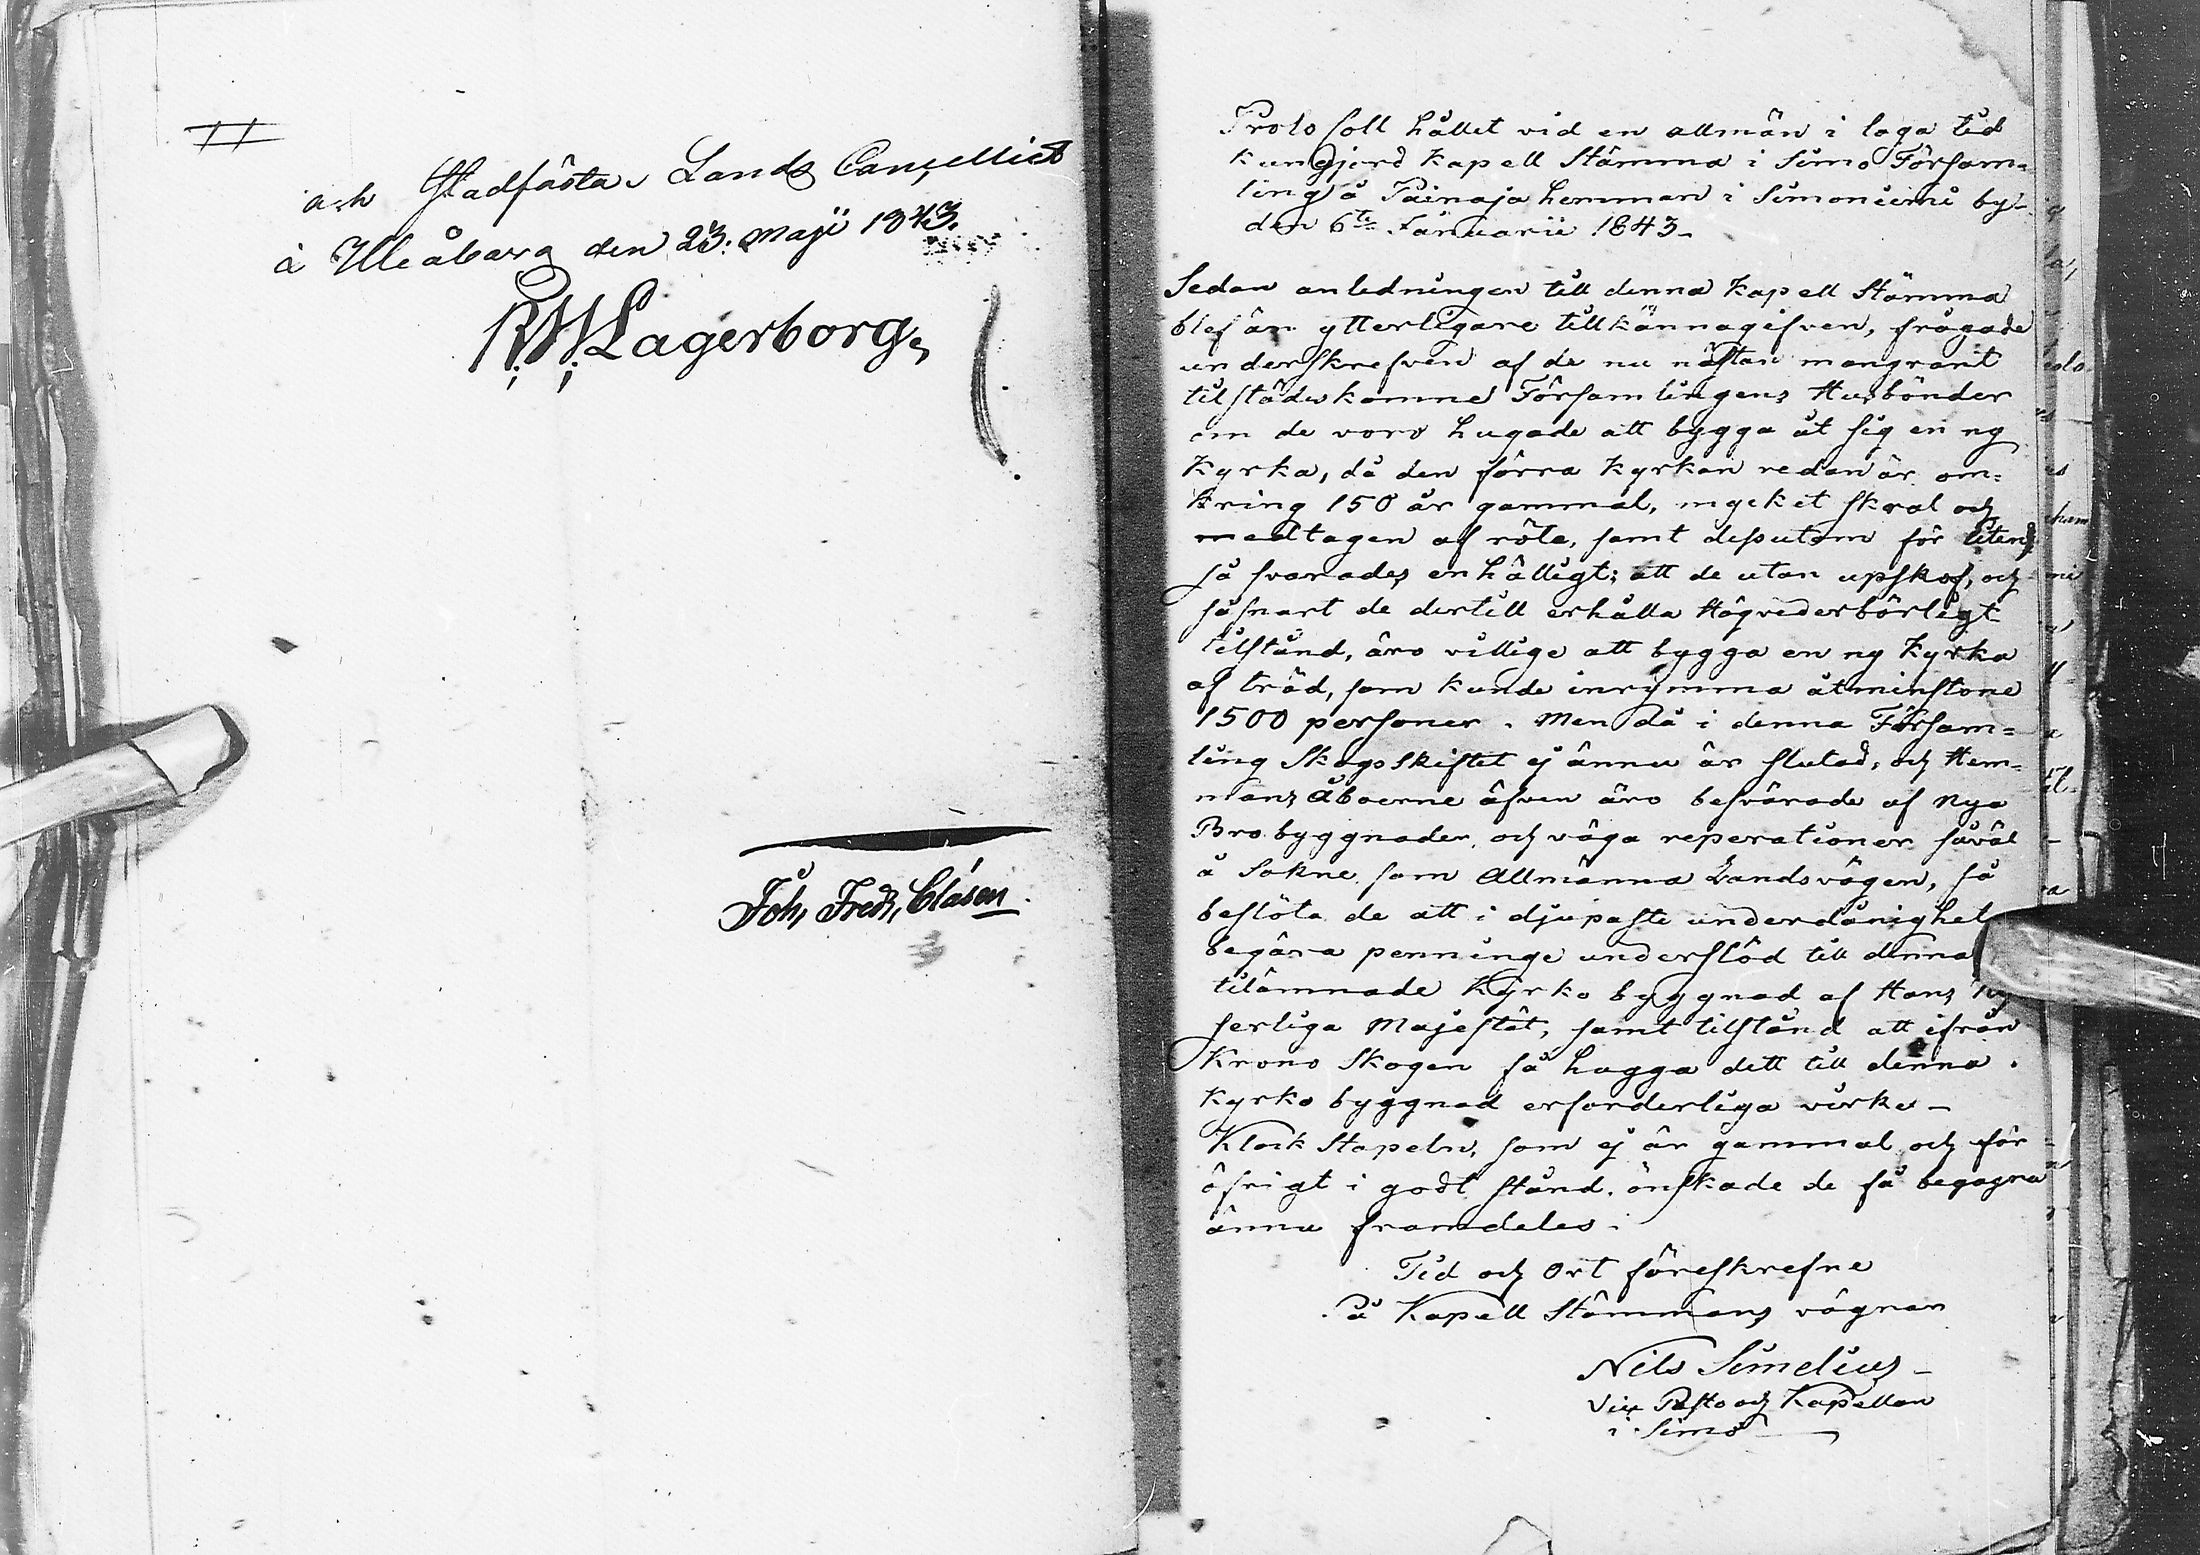 och Stadfästa. Lands Cancelliet
i Uleåborg den 23. Maji 1843.
R. W. Lagerborg,
Joh, Fredr, Clasen
Protokoll hållet vid en allmän i laga tid
kungjord Kapell Stämma i Simo Försam=
ling å Painaja hemman i Simoniemi by
den 6te Januarii 1843.
Sedan anledningen till denna Kapell Stämma
blef än ytterligare tillkännagifven, frågade
underskrefven af de nu nästan mangrant
tilstädeskomne Församlingens Husbönder
om de voro hugade att bygga åt sig en ny
Kyrka, då den förra Kyrkan redan är om=
kring 150 år gammal, mycket skral och
medtagen af röta, samt desutom för liten;
så svarades enhälligt; att de utan upskof, och
såsnart de dertill erhålla Högvederbörligt
tilstånd, äro villige att bygga en ny Kyrka
af träd, som kunde inrymma åtminstone
1500 personer. Men då i denna Försam=
ling Skogsskiftet ej ännu är slutad, och Hem=
mans Åboerne äfven äro besvärade af Nya
Brobyggnader, och väga reperationer såväl
å Sokne som Allmänna Landsvägen, så
beslöto de att i djupaste underdånighet
begära penninge understöd till denna
tilämnade Kyrko byggnad af Hans
serliga Majestät, samt tilstånd att ifrån
Krono Skogen få hugga dett till denna
Kyrko byggnad erforderliga virke –
Klock Stapeln, som ej är gammal och för
öfrigt i godt stånd, önskade de få begagna
ännu framdeles.
Tid och Ort föreskrefne
På Kapell Stämmans vägnar
Nils Simelius
Vice Pastor och Kapellan
i Simo